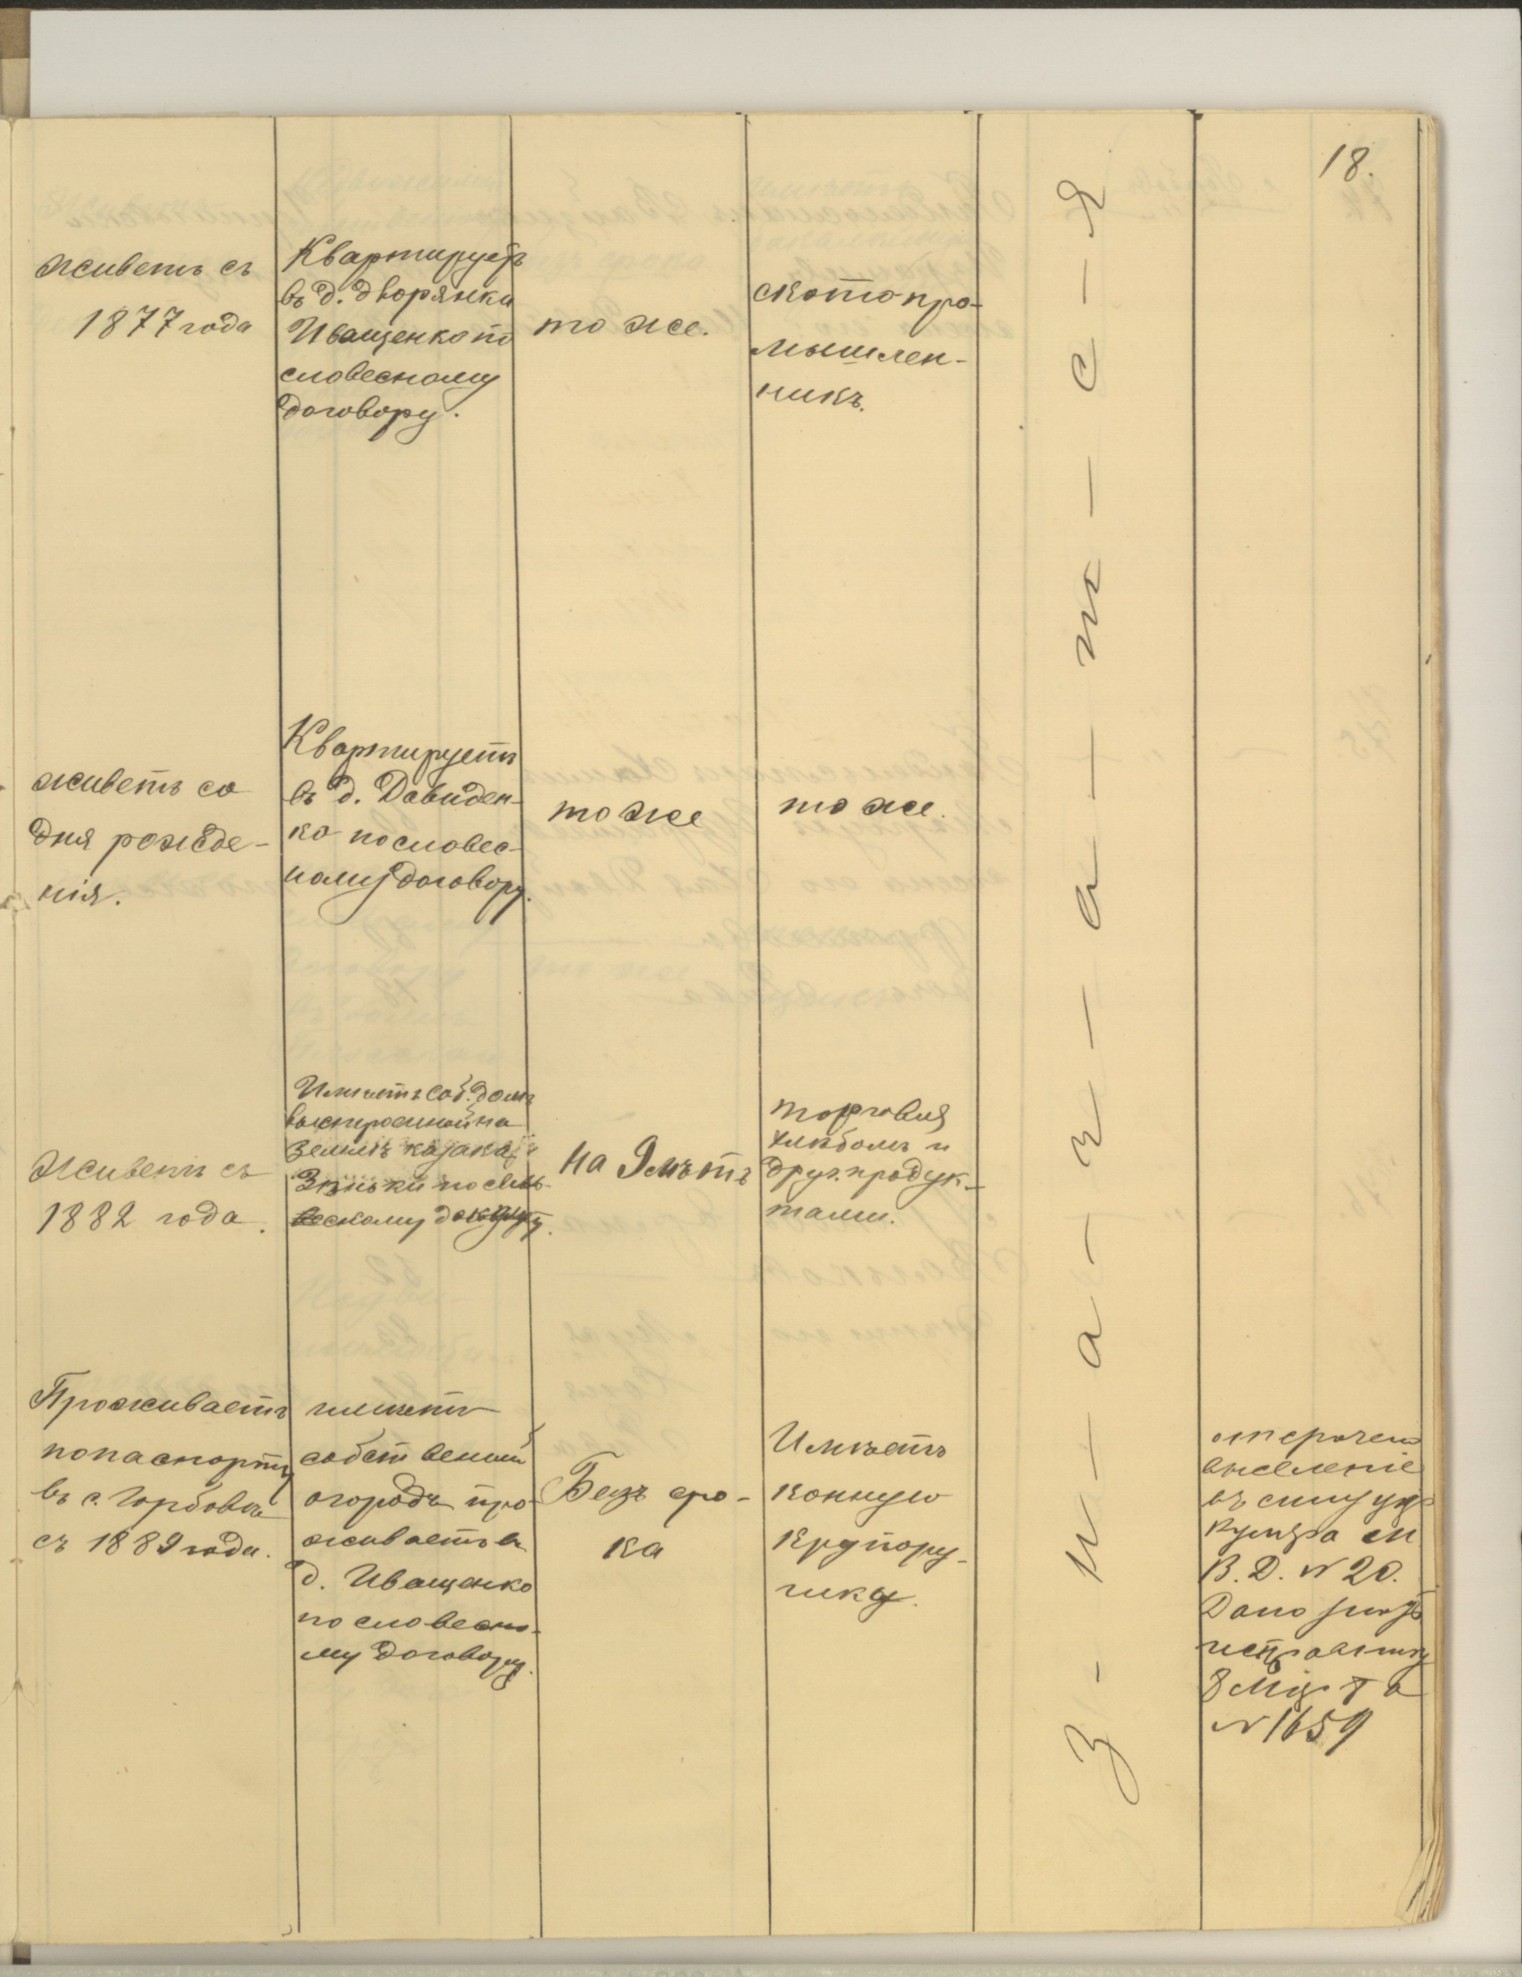 18.
живетъ съ
1877 года
Квартируетъ
въ д. дворянки
Иващенко по
словесному
договору.
то же.
скотопро-
мышлен-
никъ.
живетъ со
дня рожде-
нія.
Квартируетъ
въ д. Давиден-
ко по словес-
ному договору.
то же
то же.
Живетъ съ
1882 года.
Имѣетъ соб. домъ
выстроенный на
землѣ казака
Зѣньки по сло-
весному
на 9 лѣтъ
торговля
хлѣбомъ и
друг. продук-
тами.
Проживаетъ
по паспорту
въ с. Горбовѣ
съ 1889 года.
имѣетъ
собственный
огородъ про-
живаетъ въ
д. Иващенко
по словесно-
му договору.
Безъ сро-
ка
Имѣетъ
конную
крупору-
шку.
З-н-а-ч-а-т-с-я
отсрочено
выселеніе
въ силу цир-
куляра М
В. Д. № 20.
Дано
исправнику
8 Марта
№ 1659